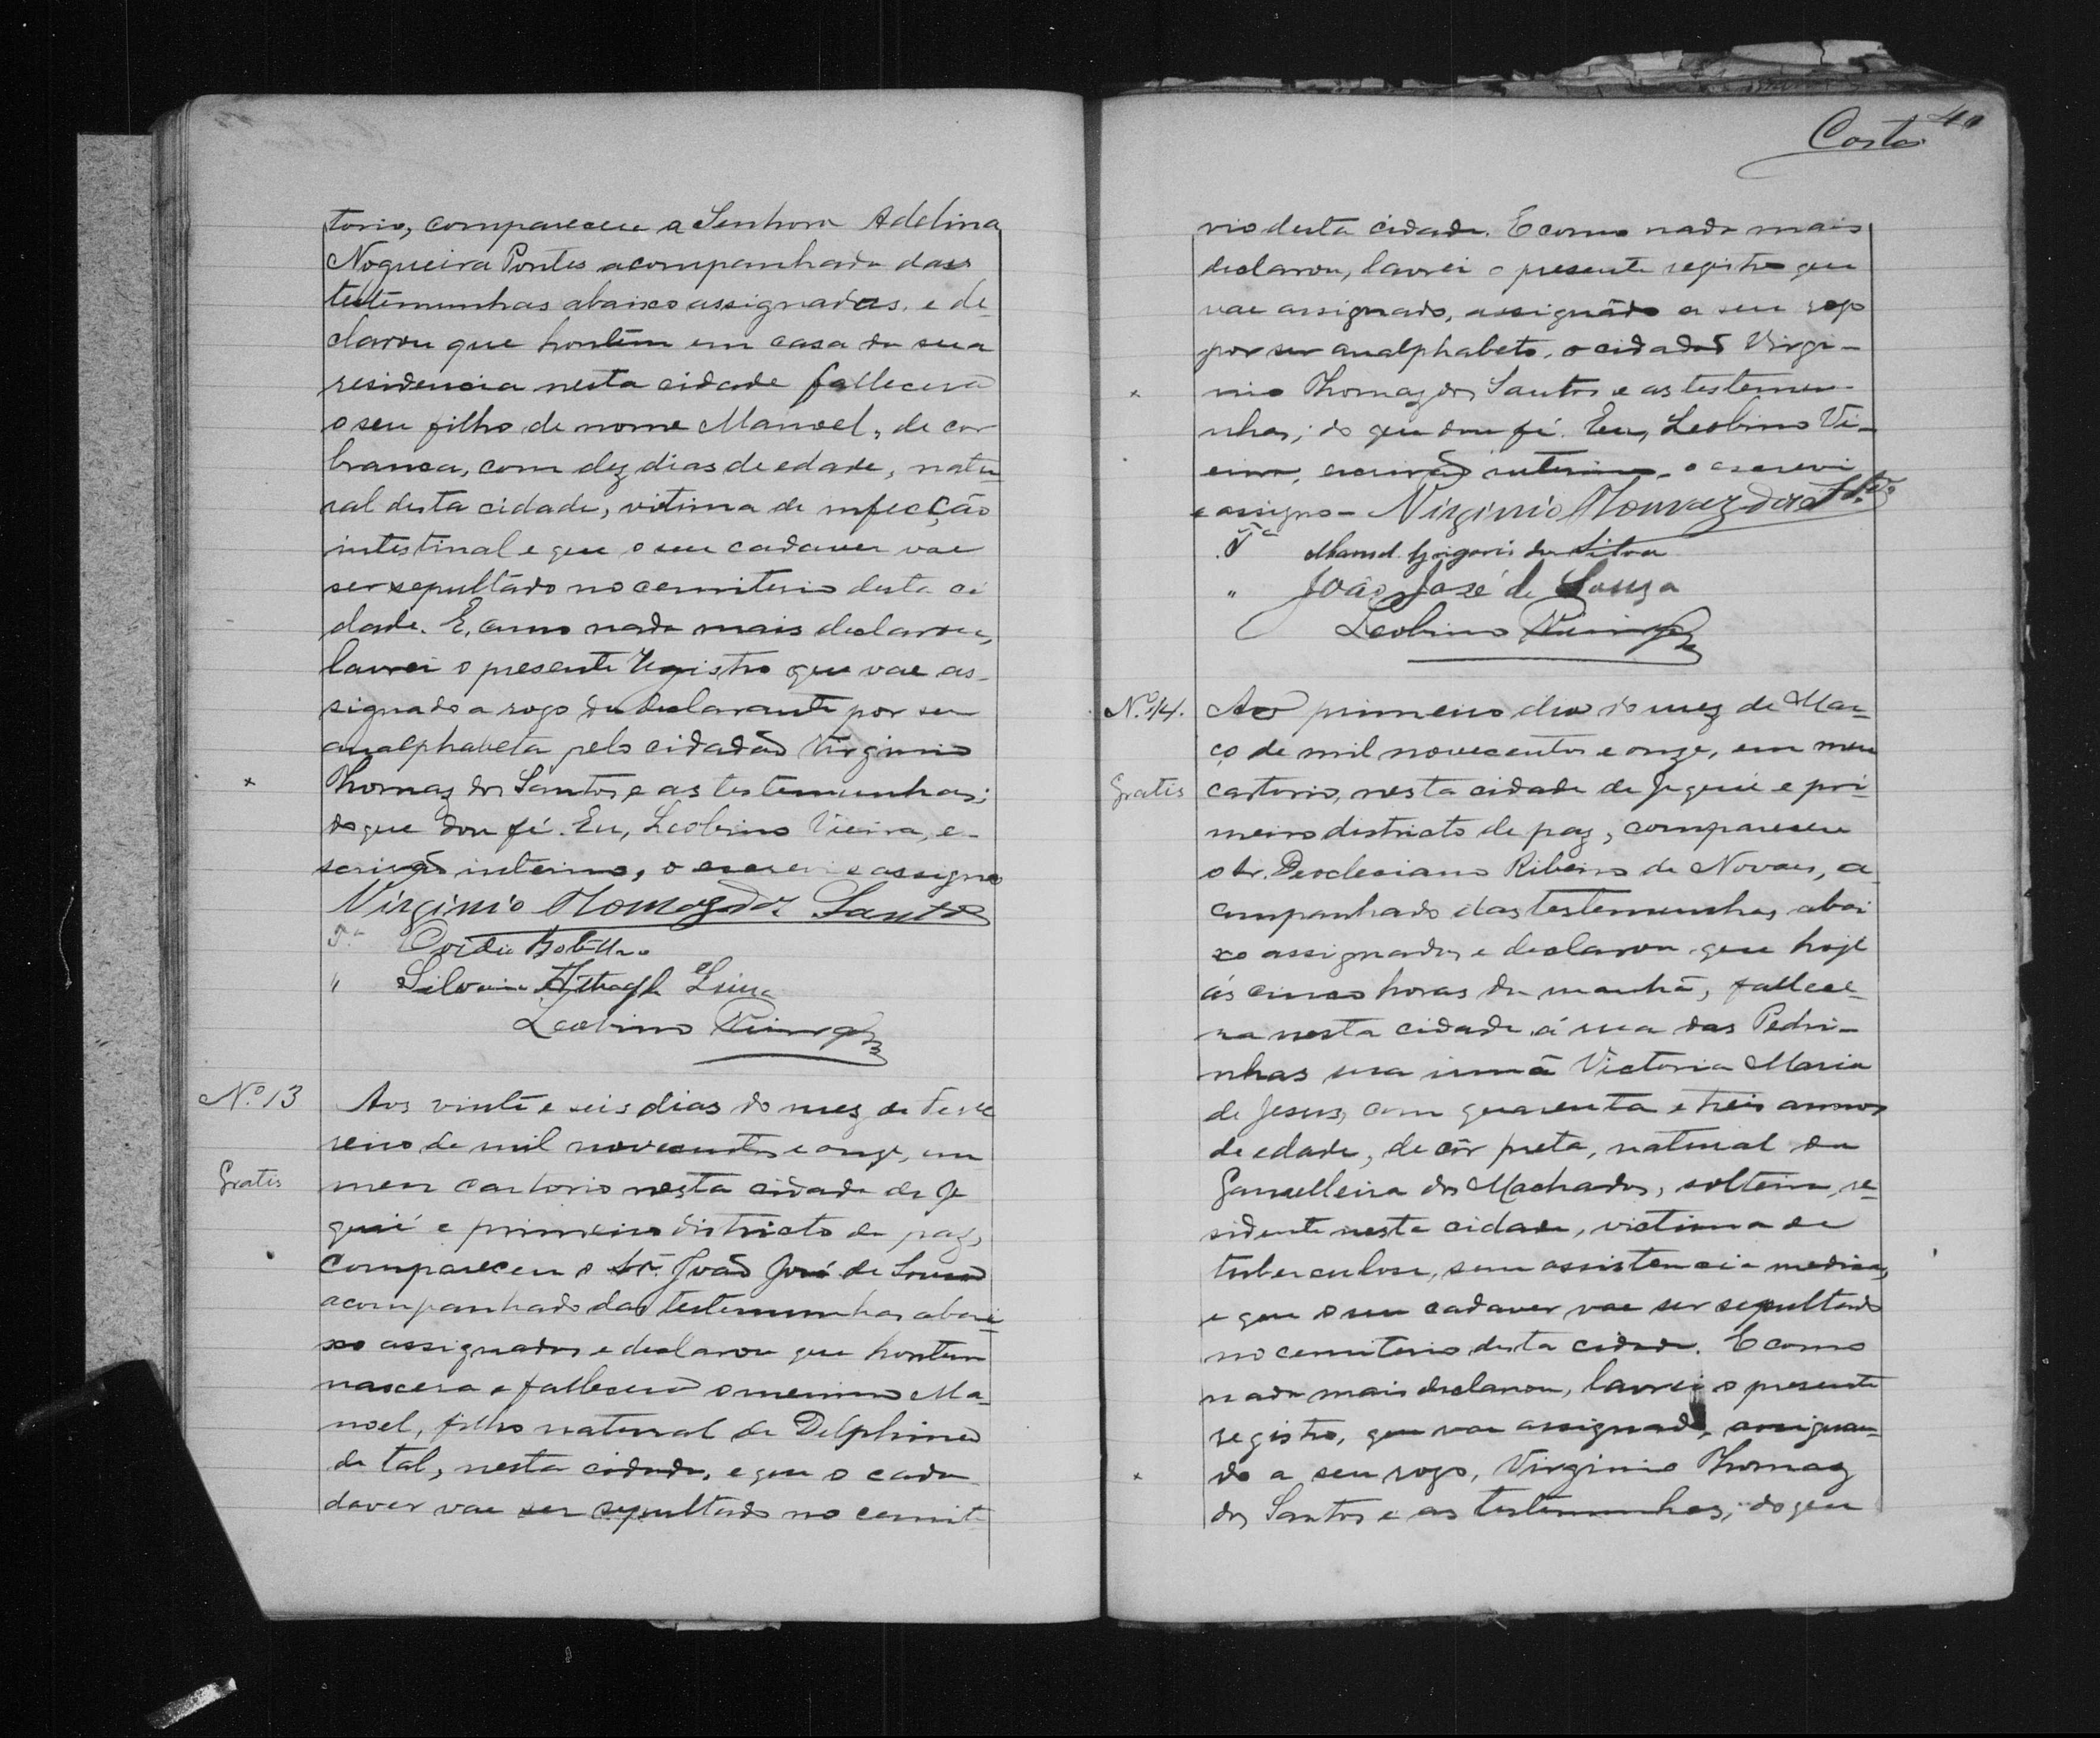 torio, compareceu a Senhora Adelina
Nogueira Pontes acompanhada das
testemunhas abaixo assignadas, e de-
clarou que hontem em casa de sua
residencia nesta cidade fallecera
o seu filho de nome Manoel, de cor
branca, com dez dias de edade, natu-
ral desta cidade, vitima de infecção
intestinal e que o seu cadaver vae
ser sepultado no cemiterio desta ci
dade. E, como nada mais declarou,
lavrei o presente registro que vae as-
signado a rogo da declarante por ser
analphabeta pelo cidadão Virginio
x Thomaz dos Santos e as testemunhas;
do que dou fé. Eu, Leobino Vieira, e-
scrivão interino, o escrevi e assigno
Virginio Thomaz dos Santos
Ta Ovidio Botelho
" Silvino Lima
Leobino Vieira
No. 13 Aos vinte e seis dias do mez de Feve
reiro de mil novecentos e onze, em
Gratis meu cartorio nesta cidade de Je
quié e primeiro districto de paz,
compareceu o Sr. João José de Souza
acompanhado das testemunhas abai-
xo assignadas e declarou que hontem
nascera e fallecera o menino Ma-
noel, filho natural de Delphina
de tal, nesta cidade, e que o cada
daver vae ser sepultado no cemit-
Costa 40
rio desta cidade. E como nada mais
declarou, lavrei o presente registro que
vae assignado, assignãdo a seu rogo
por ser analphabeto, o cidadão Virgi-
x nio Thomaz dos Santos e as testemu-
nhas; do que dou fé. Eu, Leobino Vi-
eira, escrivão interino, o escrevi
e assigno - Virginio Thomaz dos Stos
Ta Manoel Grigorio da Silva
" João José de Souza
Leobino Vieira
No. 14. Ao primeiro dia do mez de Mar-
ço de mil novecentos e onze, em meu
Gratis cartorio, nesta cidade de Jequié e pri-
meiro districto de paz, compareceu
o Sr. Deocleciano Ribeiro de Novaes, a-
companhado das testemunhas abai
xo assignadas e declarou que hoje
ás cinco horas da manhã, fallece-
ra nesta cidade á rua das Pedri-
nhas sua irmã Victoria Maria
de Jesus, com quarenta e treis annos
de edade, de côr preta, natural da
Gamelleira dos Machados, solteira, re-
sidente nesta cidade, victima de
tuberculose, sem assistencia medica,
e que o seu cadaver vae ser sepultado
no cemiterio desta cidade. E como
nada mais declarou, lavrei o presente
registro, que vae assignado, assignan-
x do a seu rogo, Virginio Thomaz
dos Santos e as testemunhas; do que